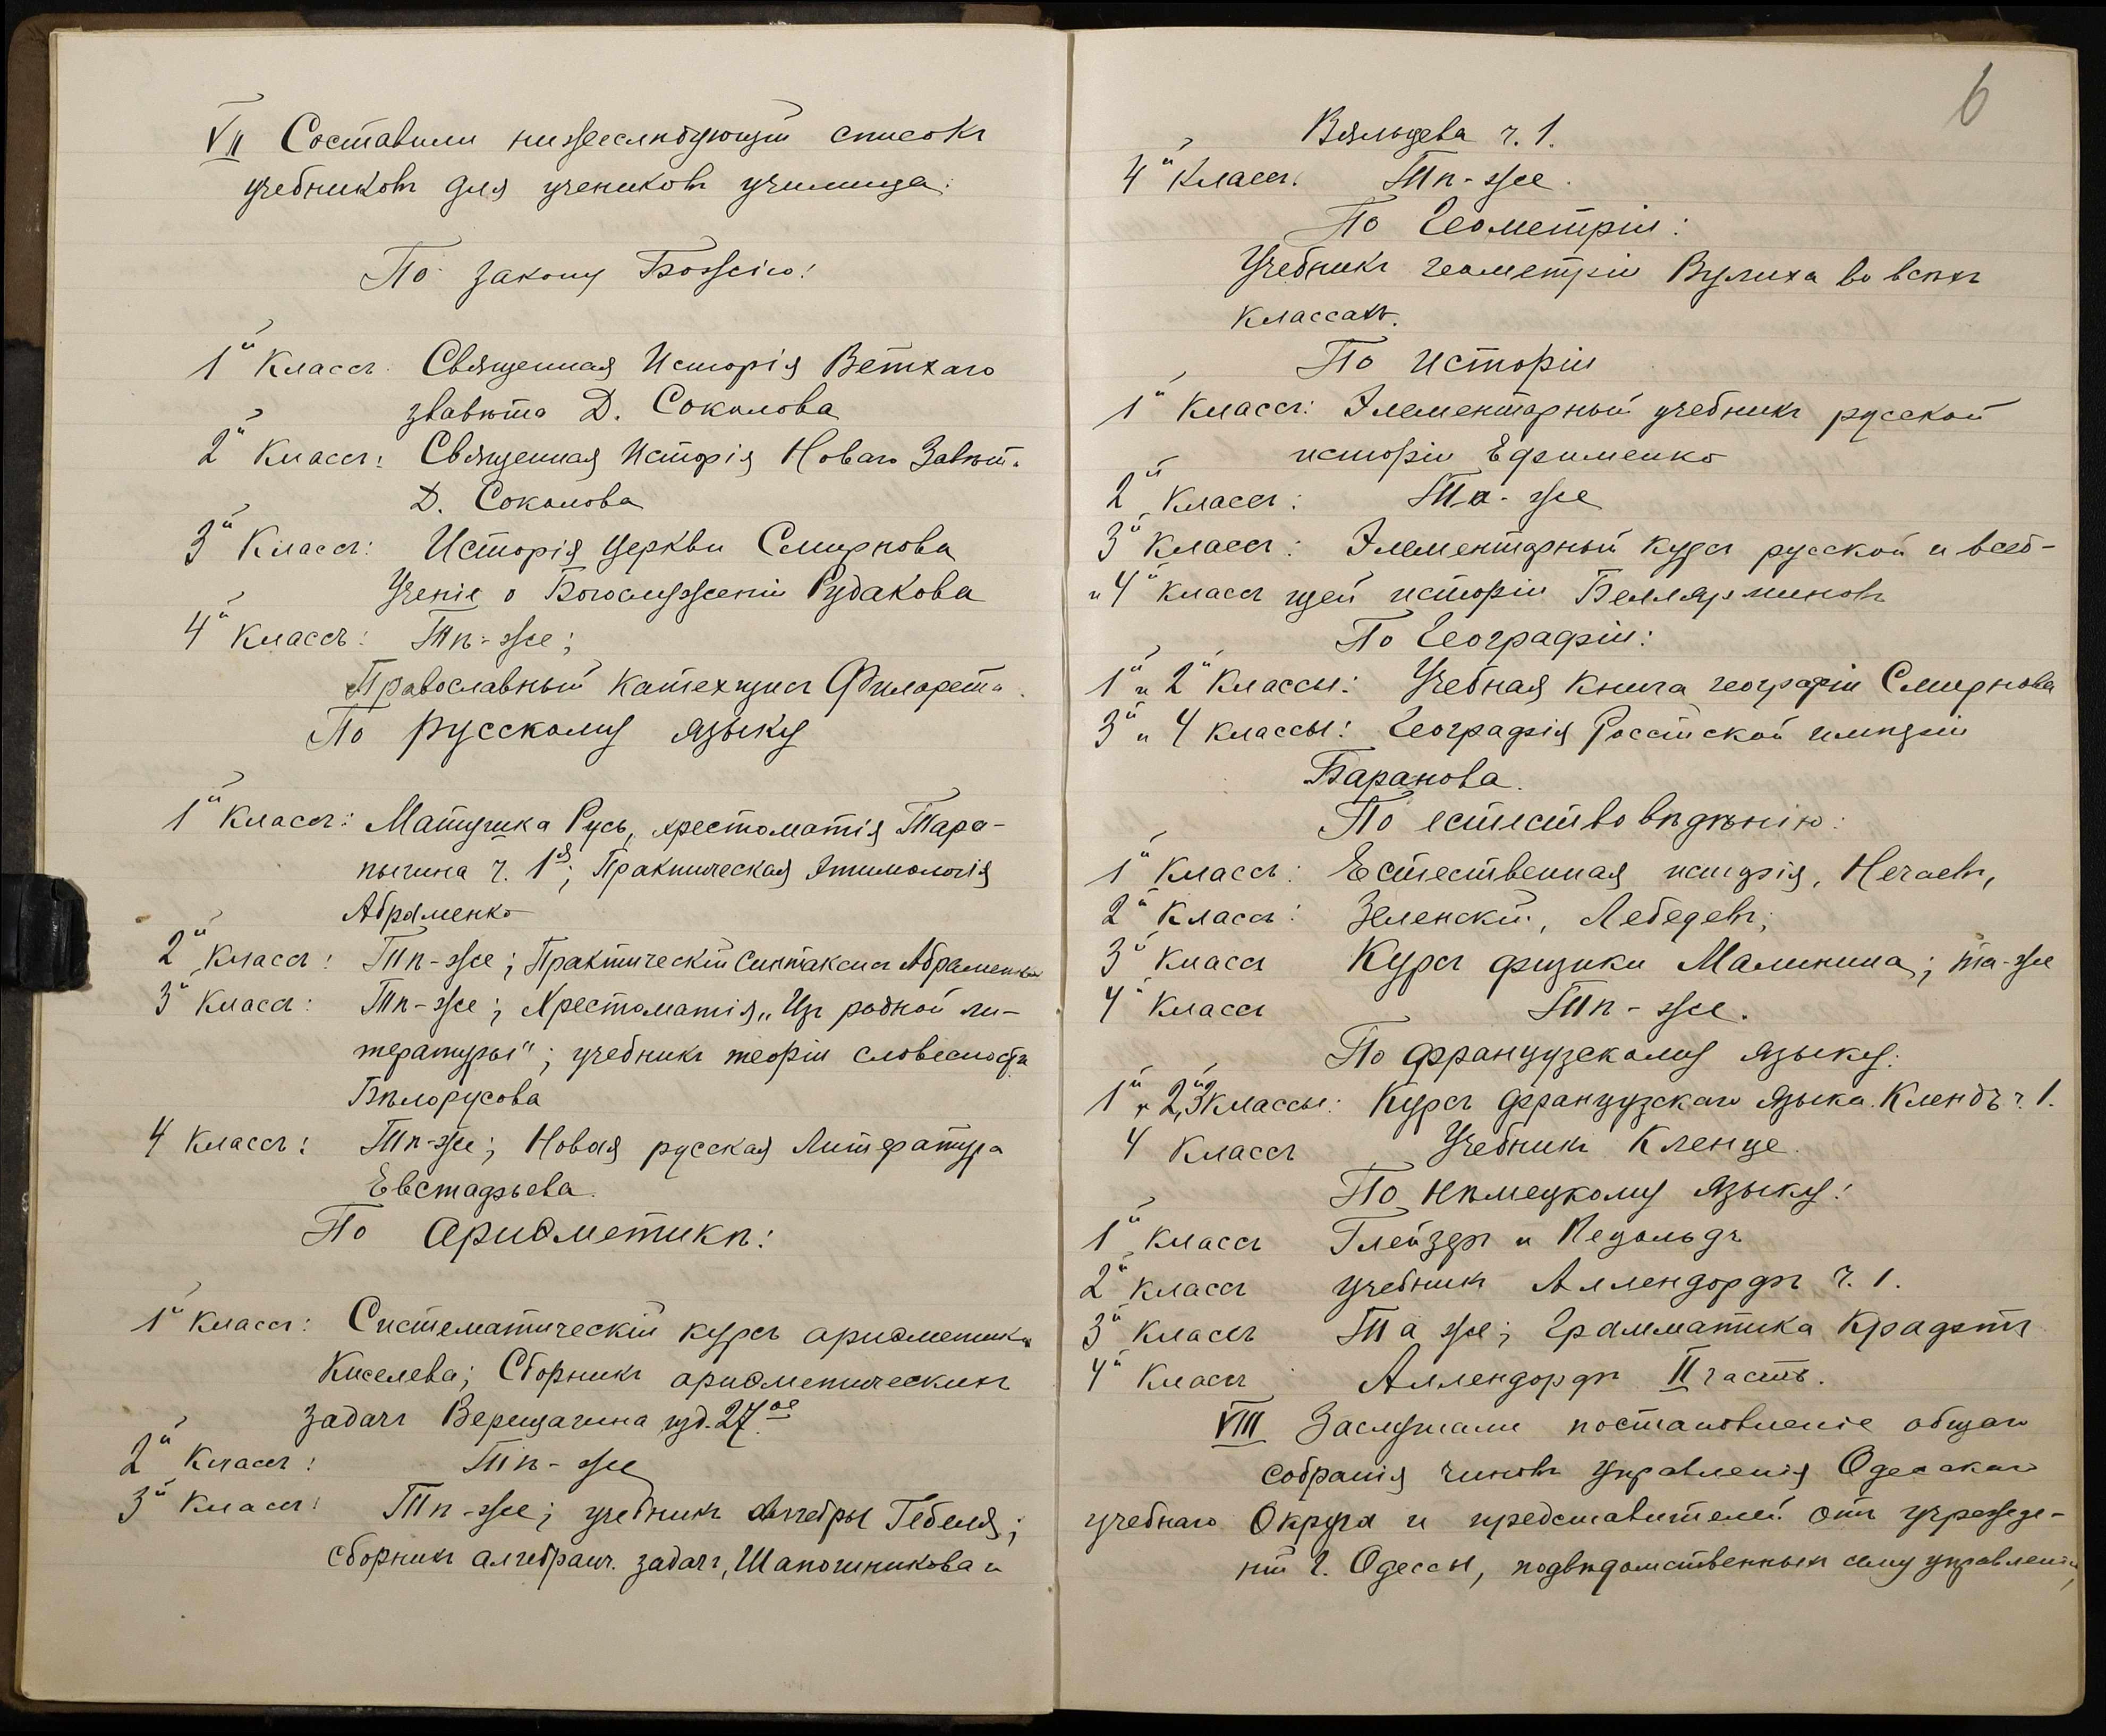 VII Составили нижеслѣдующій списокъ
учебниковъ для учениковъ училища:
По закону Божію:
1й Классъ: Священная Исторія Ветхаго
завѣта Д. Соколова
2й Классъ: Священная Исторія Новаго Завѣта
Д. Соколова
3й Классъ: Исторія Церкви Смирнова
Ученіе о Богослуженіи Рудакова
4й Классъ: Тѣ-же;
Православный Катехизисъ Филарета.
По русскому языку
1й Классъ: Матушка Русь, хрестоматія Тара-
пыгина ч. 1я; Практическая Этимологія
Абраменко
2й Классъ: Тѣ-же; Практическій Синтаксисъ Абраменко
3й Классъ: Тѣ-же; Хрестоматія „Изъ родной ли-
тературы"; учебникъ теоріи словесности
Бѣлорусова
4 Классъ: Тѣ-же; Новая русская Литература
Евстафьева.
По ариѳметикѣ:
1й Классъ: Систематическій курсъ ариѳметики
Киселева; Сборникъ ариѳметическихъ
задачъ Верещагина изд. 27ое
2й Классъ: Тѣ-же
3й Классъ: Тѣ-же; учебникъ алгебры Гебеля;
Сборникъ алгебраич. задачъ, Шапошникова и
6
Вальцева ч. 1.
4й Классъ: Тѣ-же.
По Геометріи:
Учебникъ геометріи Вулиха во всѣхъ
классахъ.
По исторіи
1й Классъ: Элементарный учебникъ русской
исторіи Ефименко
2й Классъ: Та-же
3й Классъ: Элементарный курсъ русской и всеоб-
и 4й Классъ щей исторіи Беллярминовъ
По Географіи:
1й и 2й Классы: Учебная Книга географіи Смирнова
3й и 4 классы: Географія Россійской имперіи
Баранова.
По естествовѣдѣнію:
1й Классъ: Естественная исторія, Нечаевъ,
2й Классъ: Зеленскій, Лебедевъ;
3й Классъ Курсъ физики Малинина; та-же
4й Классъ Тѣ-же.
По французскому языку:
1й и 2,3й Классы: Курсъ французскаго языка. Кленцъ ч. 1.
4 Классъ Учебникъ Кленце.
По нѣмецкому языку:
1й Классъ Глейзеръ и Пецольдъ
2й Классъ учебникъ Аллендорфъ ч. 1.
3й Классъ Та же; Грамматика Крафтъ
4й Классъ Аллендорфъ II часть.
VIII Заслушали постановленіе общаго
собранія чиновъ Управленія Одесскаго
учебнаго Округа и представителей отъ учрежде-
ній г. Одессы, подвѣдомственныхъ сему управленію,